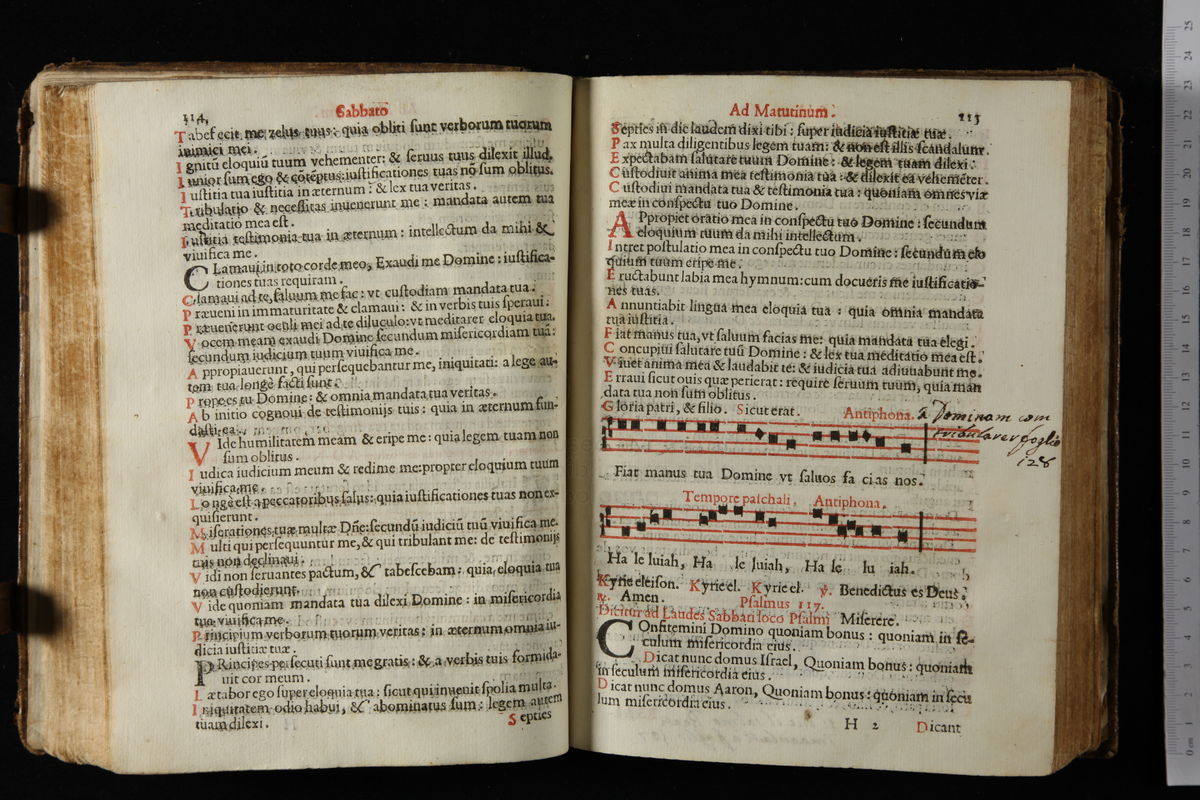 114
Sabbato
Tabefecit me zelus tuus: quia obliti sunt verborum tuorum
inimici mei.
Ignitũ eloquiũ tuum vehementer: & seruus tuus dilexit illud.
Iunior sum ego & cõtẽptus: iustificationes tuas nõ sum oblitus.
Iustitia tua iustitia in æternum: & lex tua veritas.
Tribulatio & necessitas inuenerunt me: mandata autem tua
meditatio mea est.
Iustitia testimonia tua in æternum: intellectum da mihi &
viuifica me.
CLamaui in toto corde meo, Exaudi me Domine: iustifica-
tiones tuas requiram.
Clamaui ad te, saluum me fac: vt custodiam mandata tua.
Præueni in immaturitate & clamaui: & in verbis tuis speraui.
Præuenerunt oculi mei ad te diluculo: vt meditarer eloquia tua.
Vocem meam exaudi Domine secundum misericordiam tuã:
secundum iudicium tuum viuifica me.
Appropiauerunt, qui persequebantur me, iniquitati: a lege au-
tem tua longè facti sunt.
Prope es tu Domine: & omnia mandata tua veritas.
Ab initio cognoui de testimonijs tuis: quia in æternum fun-
dasti ea.
VIde humilitatem meam & eripe me: quia legem tuam non
sum oblitus.
Iudica iudicium meum & redime me: propter eloquium tuum
viuifica me.
Longè est a peccatoribus salus: quia iustificationes tuas non ex-
quisierunt.
Miserationes tuæ multæ Dñe: secundũ iudiciũ tuũ viuifica me.
Multi qui persequuntur me, & qui tribulant me: de testimonijs
tuis non declinaui.
Vidi non seruantes pactum, & tabescebam: quia eloquia tua
non custodierunt.
Vide quoniam mandata tua dilexi Domine: in misericordia
tua viuifica me.
Principium verborum tuorum veritas: in æternum omnia iu-
dicia iustitiæ tuæ.
PRincipes persecuti sunt me gratis: & a verbis tuis formida-
uit cor meum.
Lætabor ego super eloquia tua: sicut qui inuenit spolia multa.
Iniquitatem odio habui, & abominatus sum: legem autem
tuam dilexi.
Septies
Ad Matutinum.
113
Septies in die laudem dixi tibi: super iudicia iustitiæ tuæ.
Pax multa diligentibus legem tuam: & non est illis scandalum.
Expectabam salutare tuum Domine: & legem tuam dilexi.
Custodiuit anima mea testimonia tua: & dilexit ea vehemẽter.
Custodiui mandata tua & testimonia tua: quoniam omnes viæ
meæ in conspectu tuo Domine.
APpropiet oratio mea in conspectu tuo Domine: secundum
eloquium tuum da mihi intellectum.
Intret postulatio mea in conspectu tuo Domine: secundum elo
quium tuum eripe me.
Eructabunt labia mea hymnum: cum docueris me iustificatio-
nes tuas.
Annuntiabit lingua mea eloquia tua: quia omnia mandata
tua iustitia.
Fiat manus tua, vt saluum facias me: quia mandata tua elegi.
Concupiui salutare tuũ Domine: & lex tua meditatio mea est.
Viuet anima mea & laudabit te: & iudicia tua adiuuabunt me.
Erraui sicut ouis quæ perierat: require seruum tuum, quia man
data tua non sum oblitus.
Gloria patri, & filio. Sicut erat. Antiphona.
a Dominam com
tribularer foglio
128
Fiat manus tua Domine vt saluos fa ci as nos.
Tempore paschali. Antiphona.
Ha le luiah, Ha le luiah, Ha le lu iah.
Kyrie eleison. Kyrie el. Kyrie el. ℣. Benedictus es Deus.
℟. Amen. Psalmus 117.
Dicitur ad Laudes Sabbati loco Psalmi Miserere.
COnfitemini Domino quoniam bonus: quoniam in se-
culum misericordia eius.
Dicat nunc domus Israel, Quoniam bonus: quoniam
in seculum misericordia eius.
Dicat nunc domus Aaron, Quoniam bonus: quoniam in secu
lum misericordia eius.
H 2
Dicant